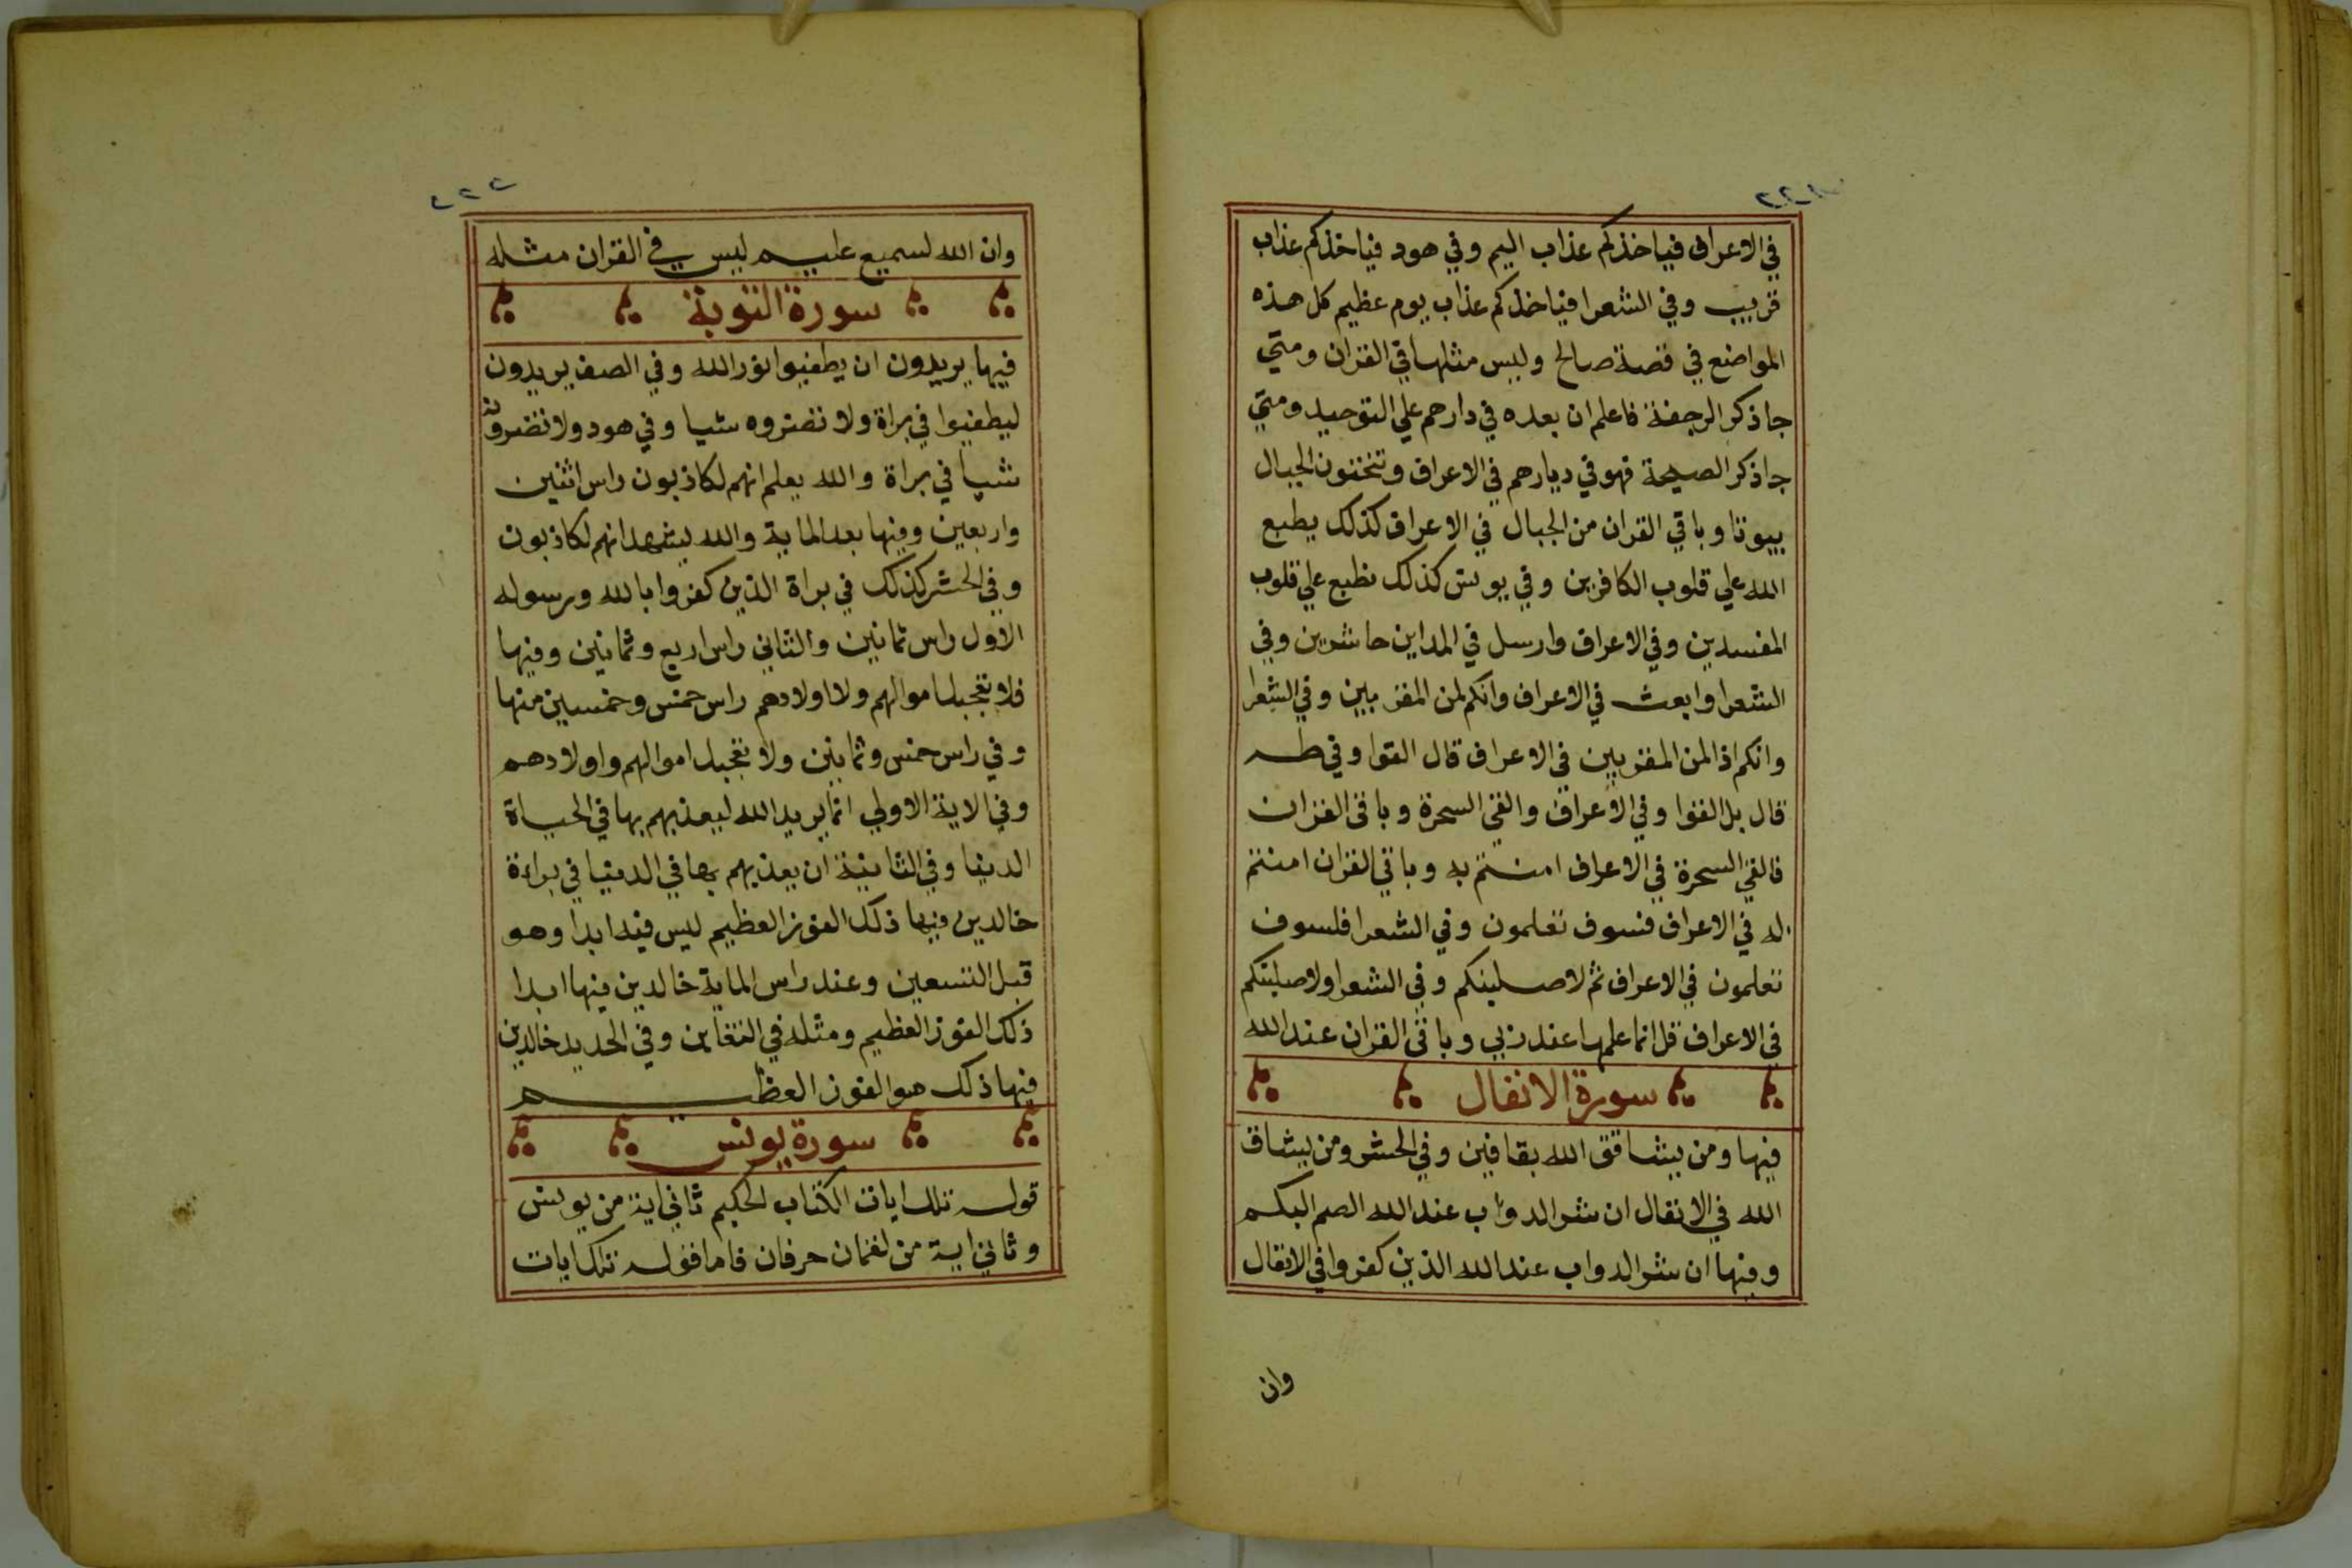 في الاعراف فياخذكم عذاب اليم وفي هود فياخذكم عذاب
قريب وفي الشعرا فياخذكم عذاب يوم عظيم كل هذه
المواضع في قصة صالح وليس مثلها في القران ومتي
جا ذكر الرجفة فاعلم ان بعده في دارهم علي التوحيد ومتي
جا ذكر الصيحة فهو في ديارهم في الاعراف وتنحتون الجبال
بيوتا وباقي القران من الجبال في الاعراف كذلك يطبع
الله علي قلوب الكافرين وفي يونس كذلك نطبع علي قلوب
المفسدين وفي الاعراف وارسل في المداين حاشرين وفي
الشعرا وابعث في الاعراف وانكم لمن المقربين وفي الشعرا
وانكم اذا لمن المقربين في الاعراف قال القوا وفي طه
قال بل القوا وفي الاعراف والقي السحرة وباقي القران
فالقي السحرة في الاعراف امنتم به وباقي القران امنتم
له في الاعراف فسوف تعلمون وفي الشعرا فلسوف
تعلمون في الاعراف ثم لاصلبنكم وفي الشعرا ولاصلبنكم
في الاعراف قل انما علمها عند ربي وباقي القران عند الله
سورة الانفال
فيها ومن يشاقق الله بقافين وفي الحشر ومن يشاق
الله في الانفال ان شر الدواب عند الله الصم البكم
وفيها ان شر الدواب عند الله الذين كفروا في الانفال
وان
٢٢٢
وان الله لسميع عليم ليس في القران مثله
سورة التوبة
فيها يريدون ان يطفيوا نور الله وفي الصف يريدون
ليطفيوا في براة ولا تضروه شيا وفي هود ولا تضرونه
شيا في براة والله يعلم انهم لكاذبون راس اثنين
واربعين وفيها بعد الماية والله يشهد انهم لكاذبون
وفي الحشر كذلك في براة الذين كفروا بالله ورسوله
الاول راس ثمانين والثاني راس اربع وثمانين وفيها
فلا تعجبك اموالهم ولا اولادهم راس خمس وخمسين منها
وفي راس خمس وثمانين ولا تعجبك اموالهم واولادهم
وفي الاية الاولي انما يريد الله ليعذبهم بها في الحياة
الدنيا وفي الثانية ان يعذبهم بها في الدنيا في براءة
خالدين فيها ذلك الفوز العظيم ليس فيه ابدا وهو
قبل التسعين وعند راس الماية خالدين فيها ابدا
ذلك الفوز العظيم ومثله في التغابن وفي الحديد خالدين
فيها ذلك هو الفوز العظيم
سورة يونس
قوله تلك ايات الكتاب الحكيم ثاني اية من يونس
وثاني اية من لقمان حرفان فاما قوله تلك ايات